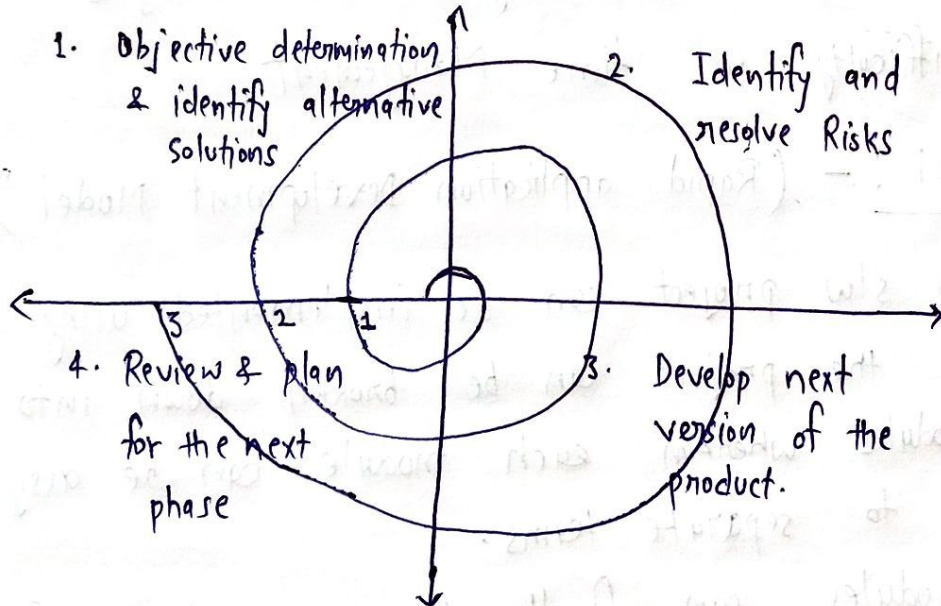 1. Objective determination
& identify alternative
solutions
2. Identify and
resolve Risks
3 2 1
4. Review & plan
for the next
phase
3. Develop next
version of the
product.